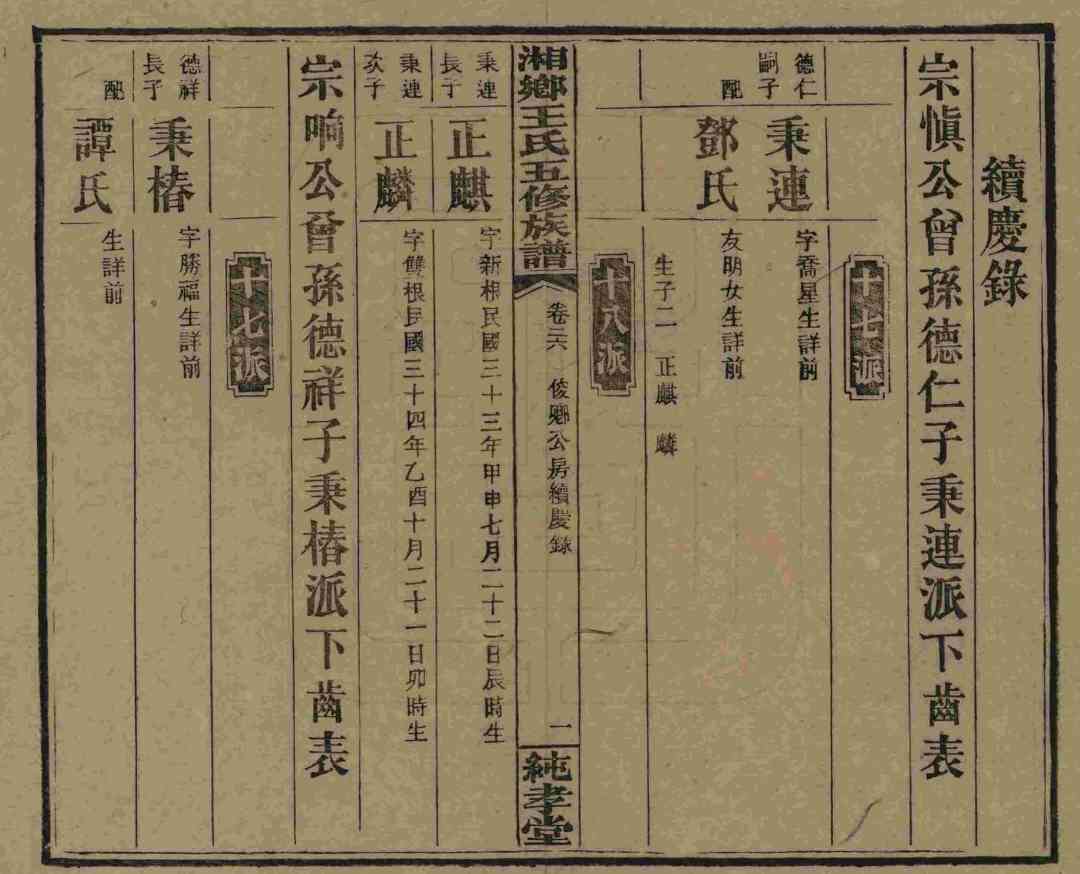 續慶錄
宗愼公曾孫德仁子秉連派下齒表
十七派
德仁嗣子
秉連
字喬星生詳前
配
鄧氏
友明女生詳前
生子二 正麒 麟
十八派
湘鄉王氏五修族譜
卷三六 俊鄉公房續慶錄
一
純孝堂
秉連長子
正麒
字新根民國三十三年甲申七月二十二日辰時生
秉連次子
正麟
字雙根民國三十四年乙酉十月二十一日卯時生
宗响公曾孫德祥子秉椿派下齒表
十七派
德祥長子
秉椿
字勝福生詳前
配
譚氏
生詳前